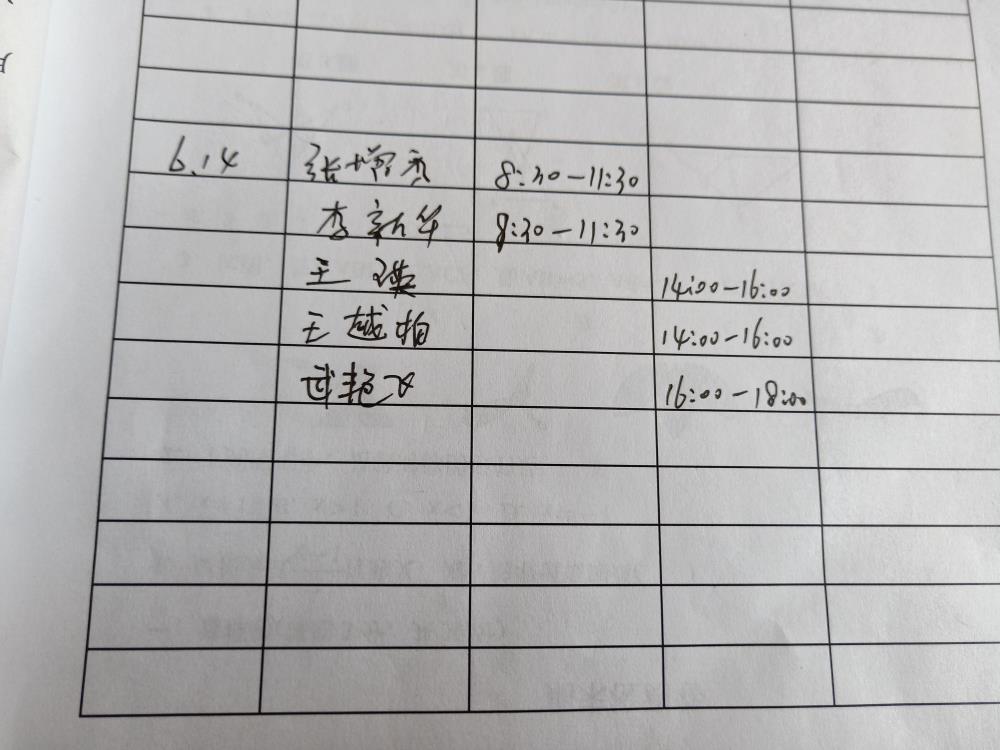 6.14 张增秀 8:30-11:30
李新华 8:30-11:30
王瑛 14:00-16:00
王越柏 14:00-16:00
武艳飞 16:00-18:00